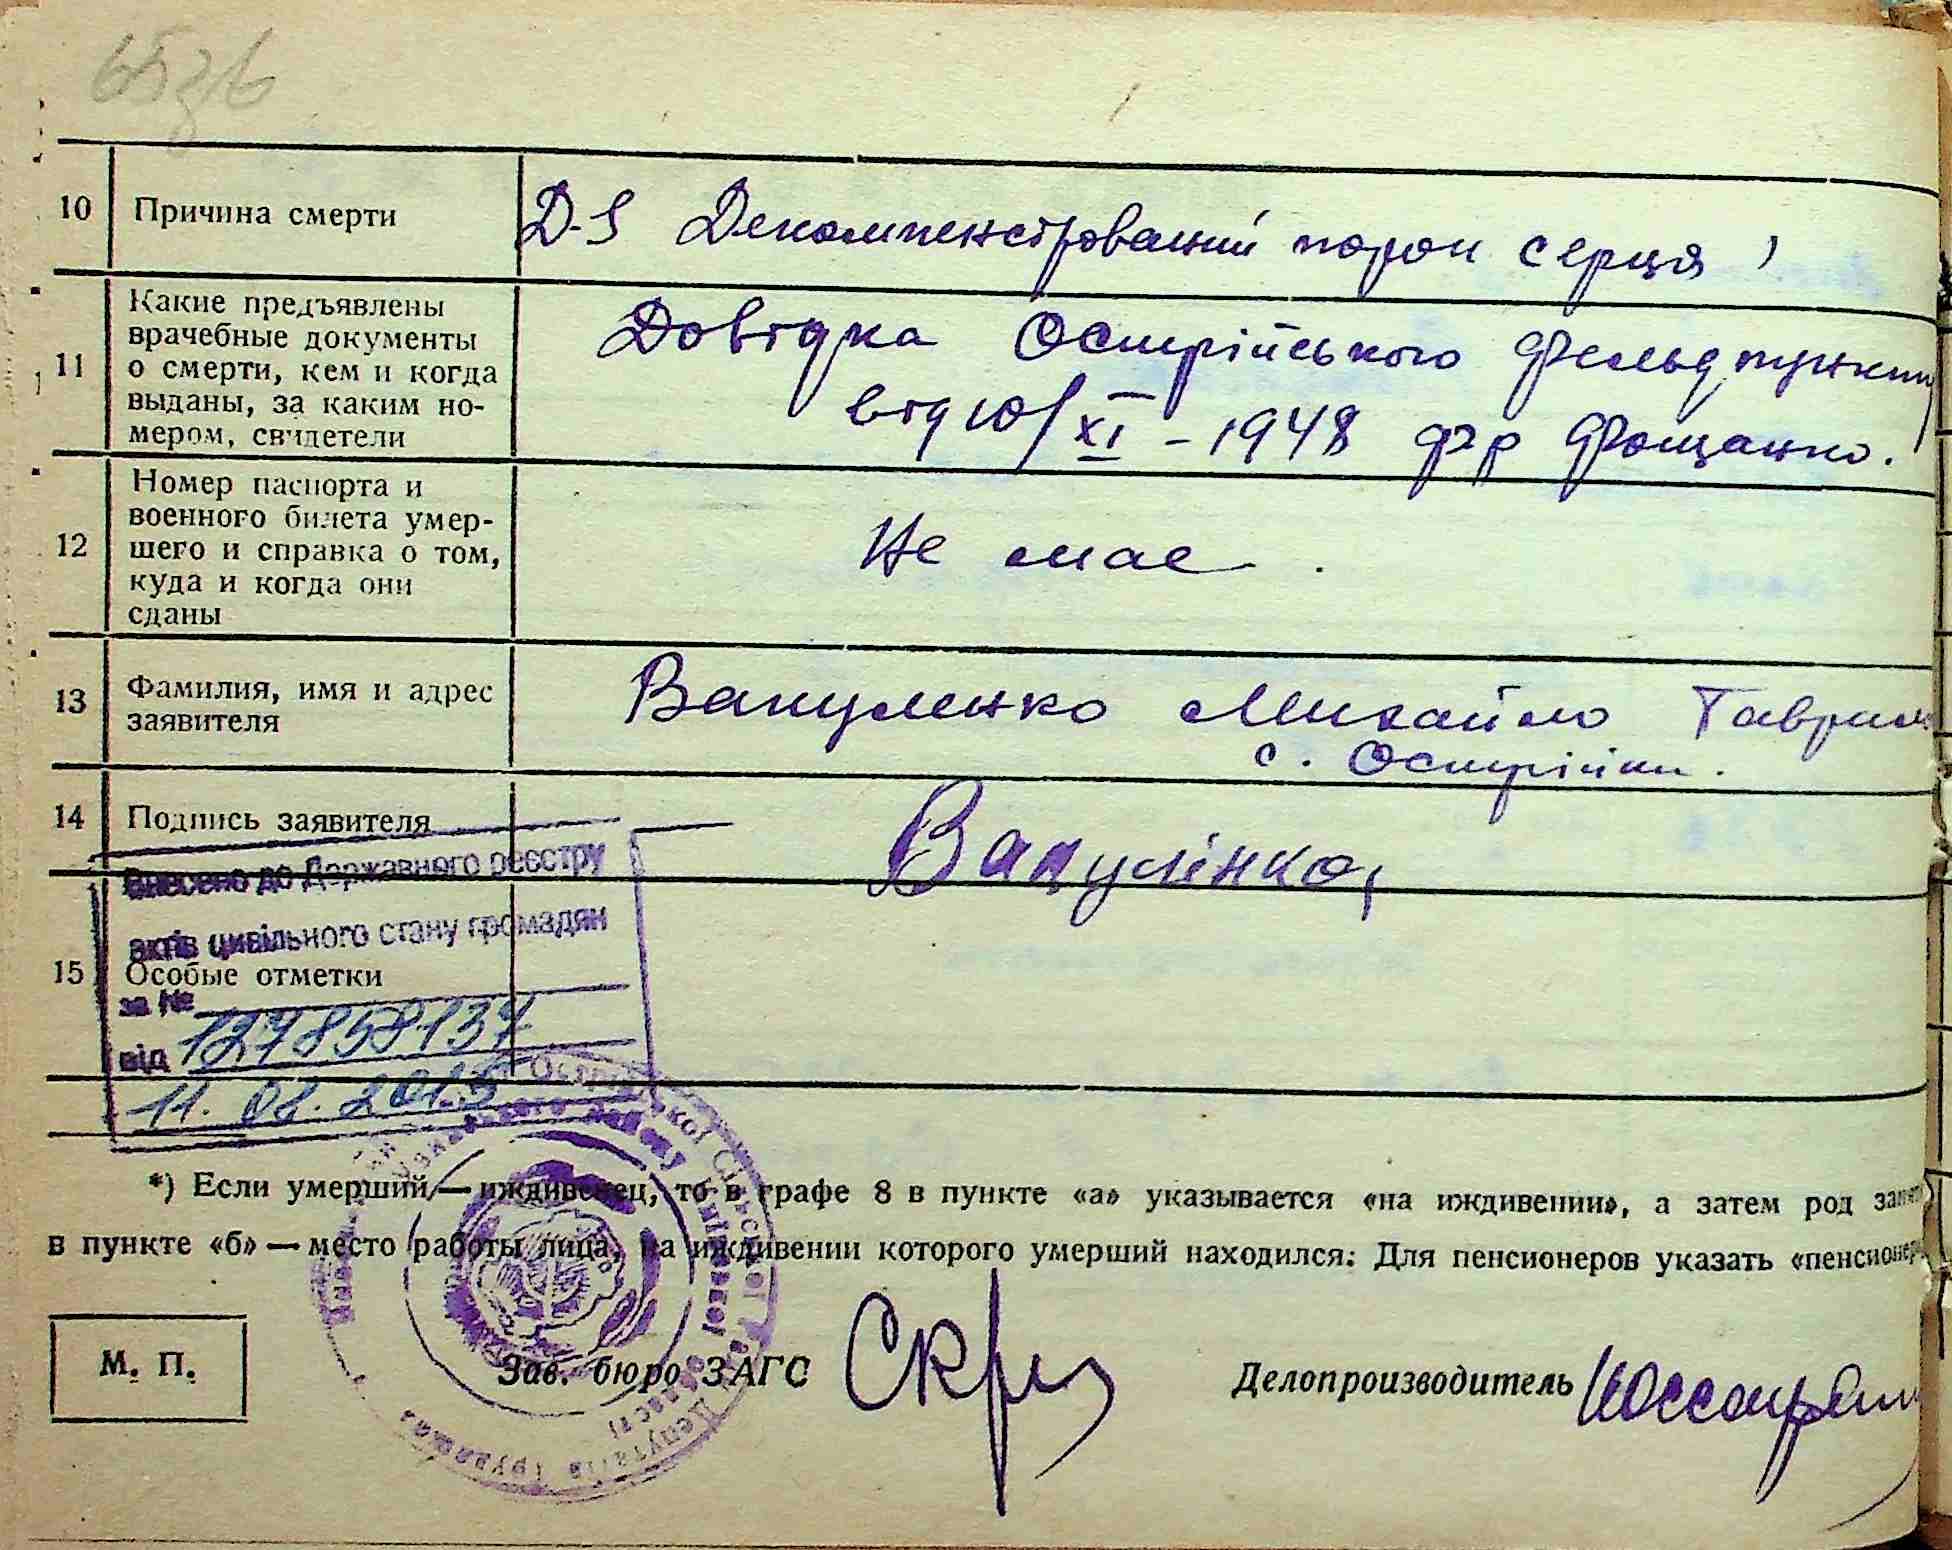 10 Причина смерти
D-S Декомпенстрований порок серця
11 Какие предъявлены
врачебные документы
о смерти, кем и когда
выданы, за каким но-
мером, свидетели
Довідка Острійського Фельдпункту
від 10/XI - 1948 ф-р Фощанко.
12 Номер паспорта и
военного билета умер-
шего и справка о том,
куда и когда они
сданы
Не має.
13 Фамилия, имя и адрес
заявителя
Вакуленко Михайло Гаврил
с. Острійки.
14 Подпись заявителя
Вакулінко
Внесено до Державного реєстру
актів цивільного стану громадян
15 Особые отметки
за №
127858137
від
11.02.2015
*) Если умерший — иждивенец, то в графе 8 в пункте «а» указывается «на иждивении», а затем род
в пункте «б» — место работы лица, на иждивении которого умерший находился: Для пенсионеров указать «пенсионер
М. П.
Зав. бюро ЗАГС
Делопроизводитель